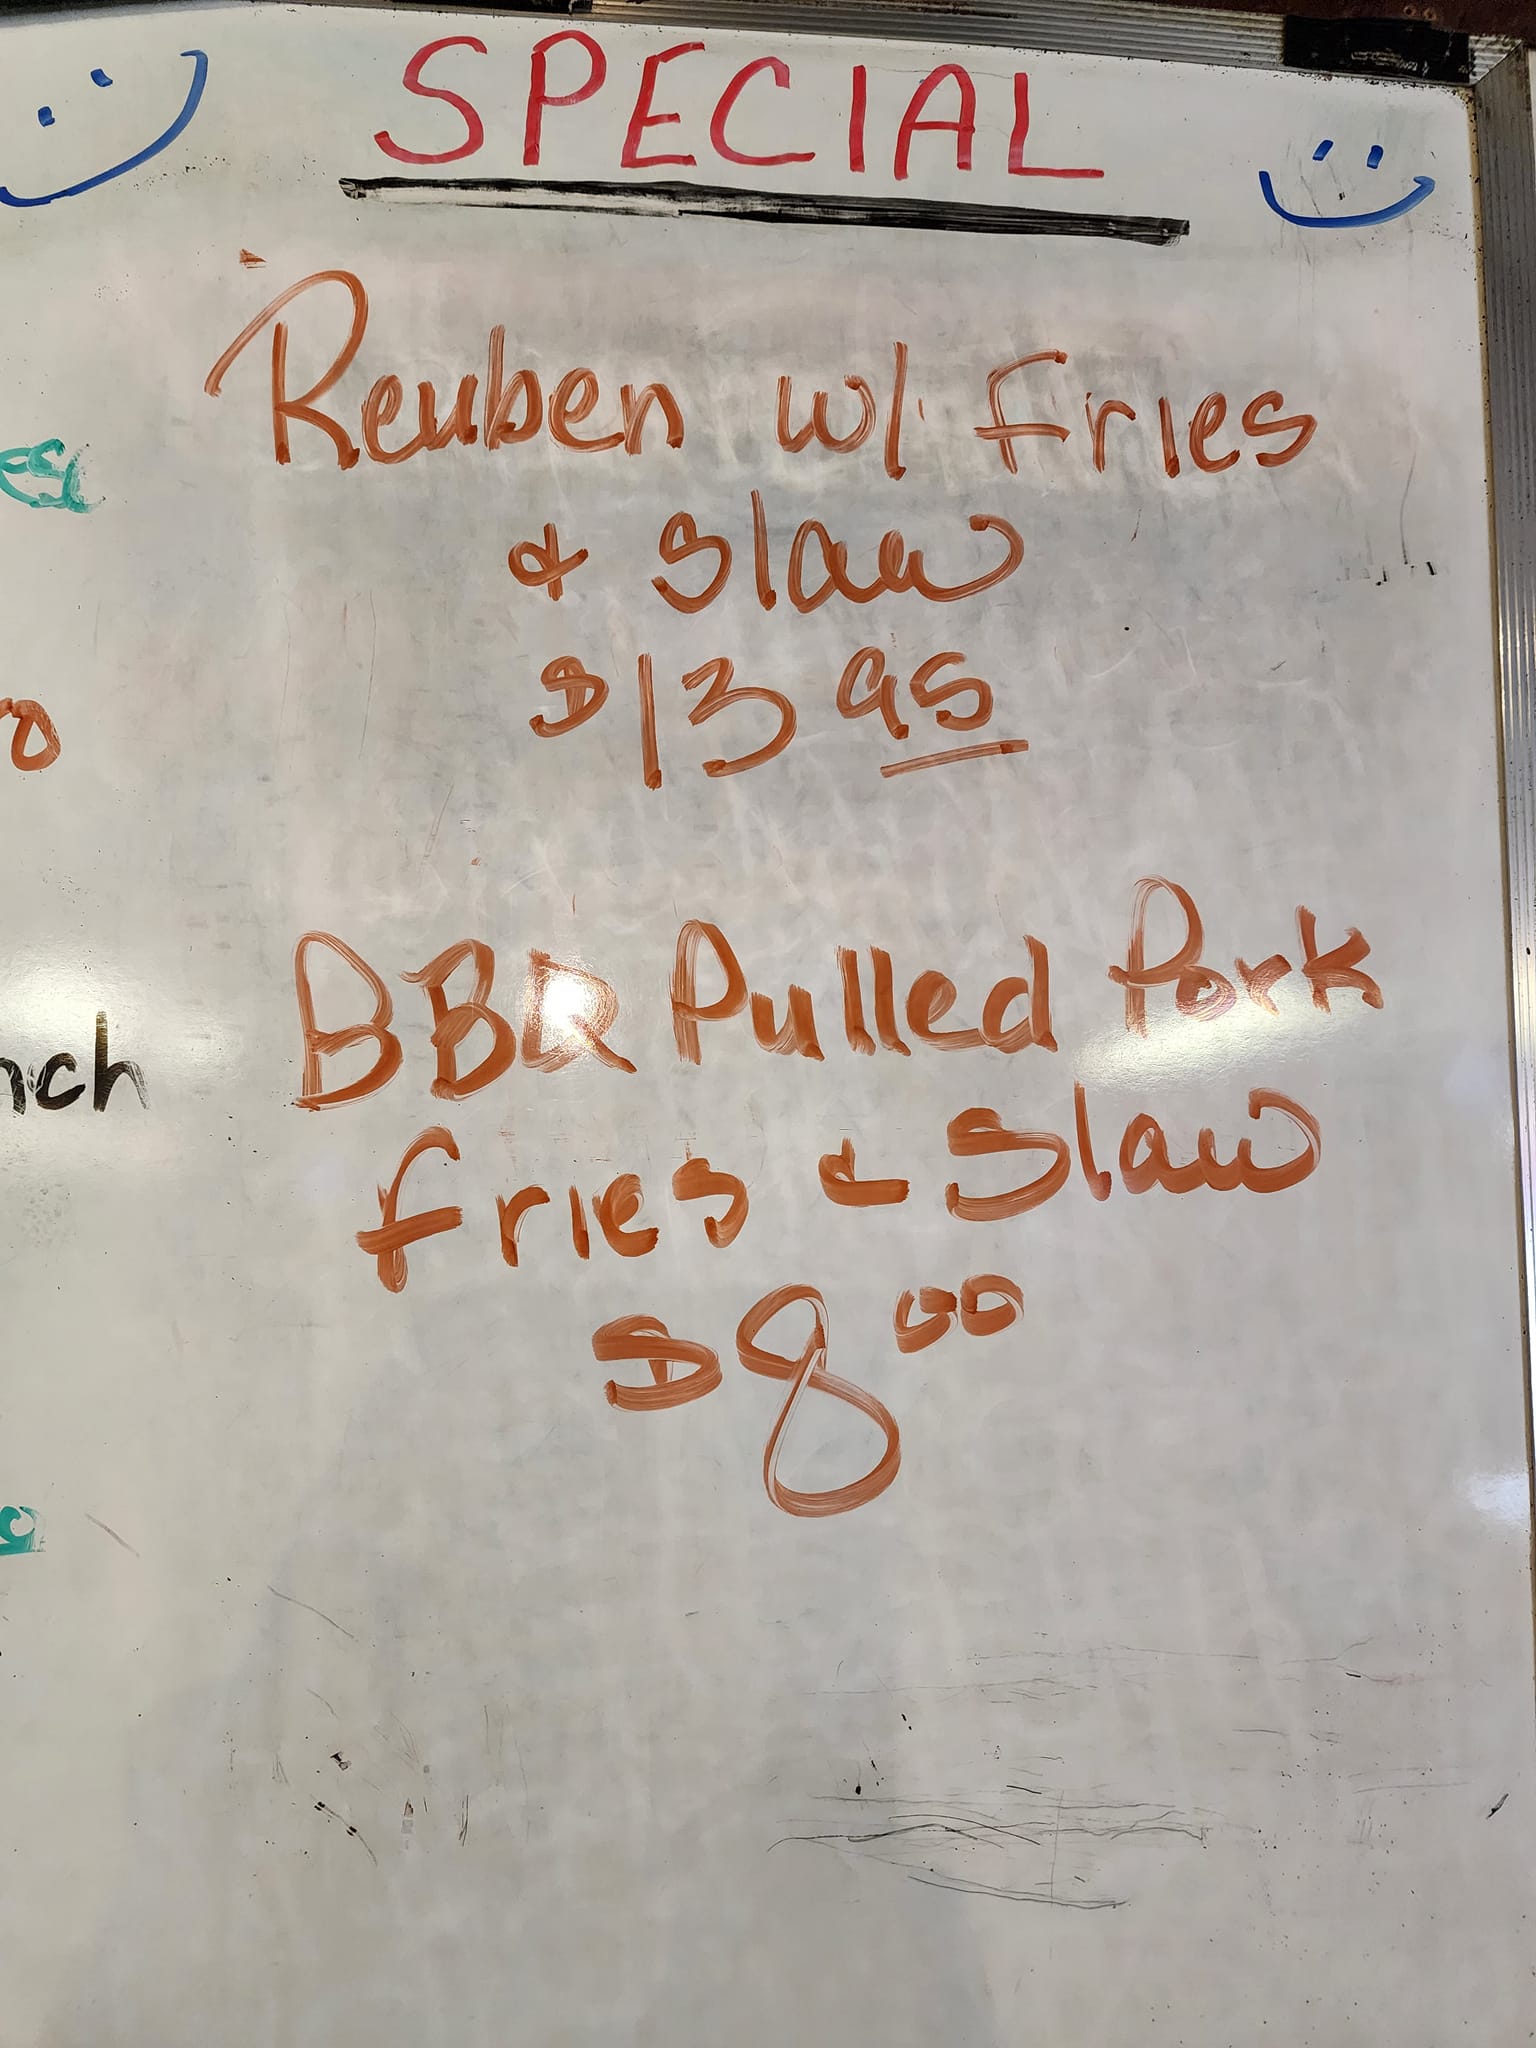 SPECIAL
Reuben w/ fries
& slaw
$13 95
BBQ Pulled Pork
fries & Slaw
$8 00
nch